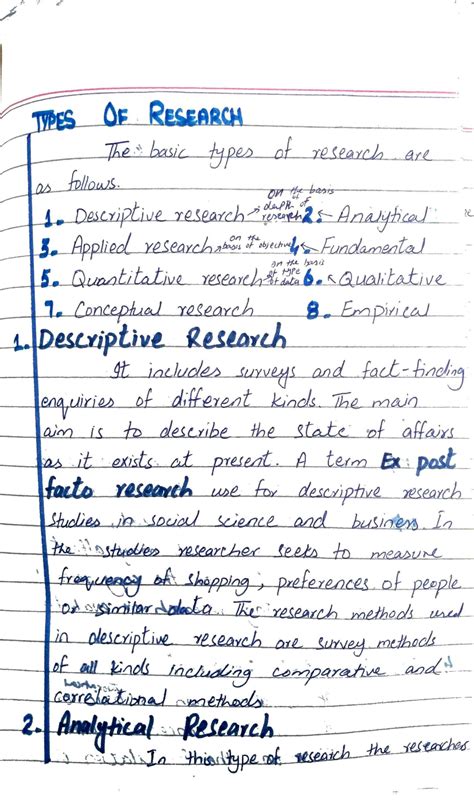 TYPES OF RESEARCH
The basic types of research are
as follows.
1. Descriptive research on the basis of depth of research 2. Analytical
3. Applied research on the basis of objective 4. Fundamental
5. Quantitative research on the basis of type of data 6. Qualitative
7. Conceptual research 8. Empirical
1. Descriptive Research
It includes surveys and fact-finding
enquiries of different kinds. The main
aim is to describe the state of affairs
as it exists at present. A term Ex post
facto research use for descriptive research
studies in social science and business. In
the studies researcher seeks to measure
frequency of shopping, preferences of people
or similar data. The research methods used
in descriptive research are survey methods
of all kinds including comparative and
correlational methods
2. Analytical Research
In this type of research the researcher